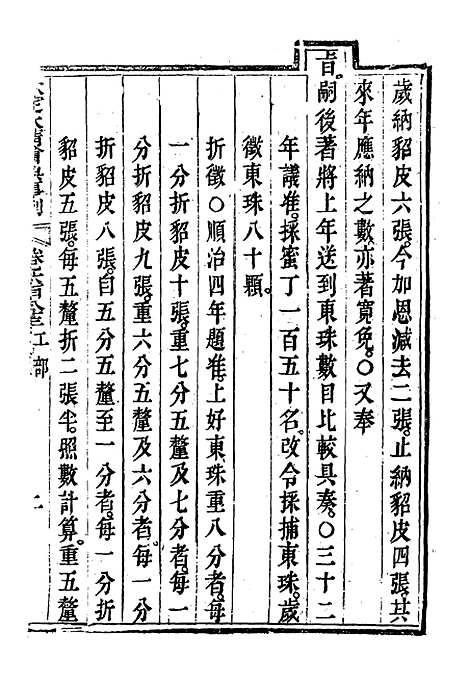 歲納貂皮六張。今加恩減去二張。止納貂皮四張。其
來年應納之數。亦著寬免。○又奉
旨。嗣後著將上年送到東珠數目比較具奏。○三十二
年議准。採蜜丁一百五十名。改令採捕東珠。歲
徵東珠八十顆。
折徵○順治四年題准。上好東珠重八分者。每
一分折貂皮十張。重七分五釐及七分者。每一
分折貂皮九張。重六分五釐及六分者。每一分
折貂皮八張。自五分五釐至一分者。每一分折
貂皮五張。每五釐折二張半。照數計算。重五釐
大清會典事例 卷 工部 二